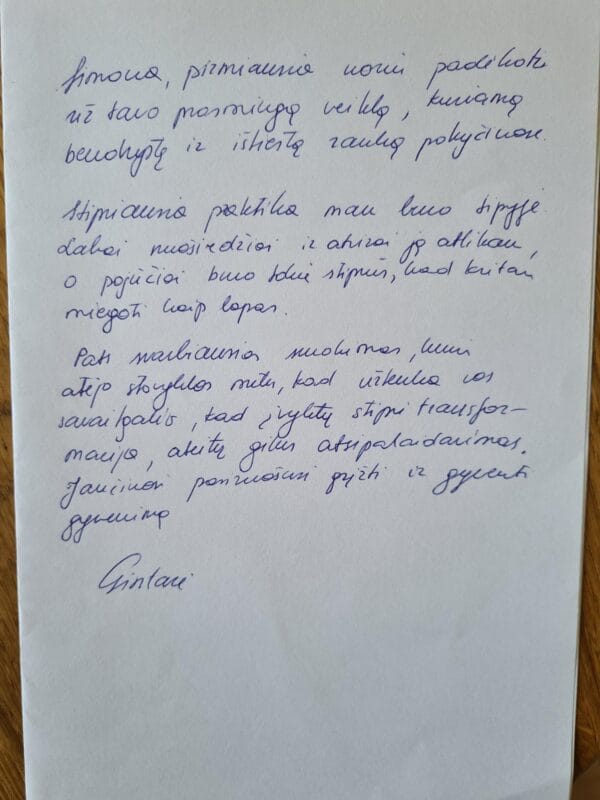 Simona, pirmiausia noriu padėkoti
už tavo prasmingą veiklą, kuriamą
bendrystę ir ištiestą ranką pokyčiuose.
Stipriausia praktika man buvo tipyje.
Labai nuoširdžiai ir atvirai ją atlikau,
o pojūčiai buvo tokie stiprūs, kad kritau
miegoti kaip lapas.
Pats svarbiausias suvokimas, kuris
atėjo stovyklos metu, kad užtenka vos
savaitgalio, kad įvyktų stipri transfor-
macija, ateitų gilus atsipalaidavimas.
Jaučiuosi pasiruošusi grįžti ir gyventi
gyvenimą
Gintarė